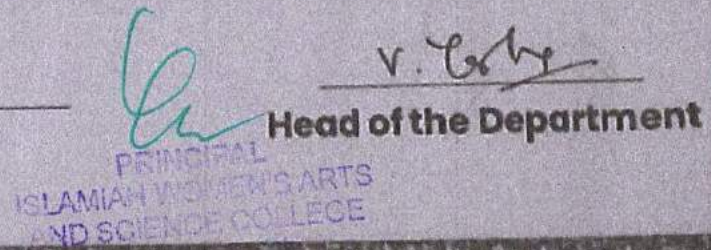 V.
Head of the Department
PRINCIPAL
ISLAMIAH WOMEN'S ARTS
AND SCIENCE COLLEGE